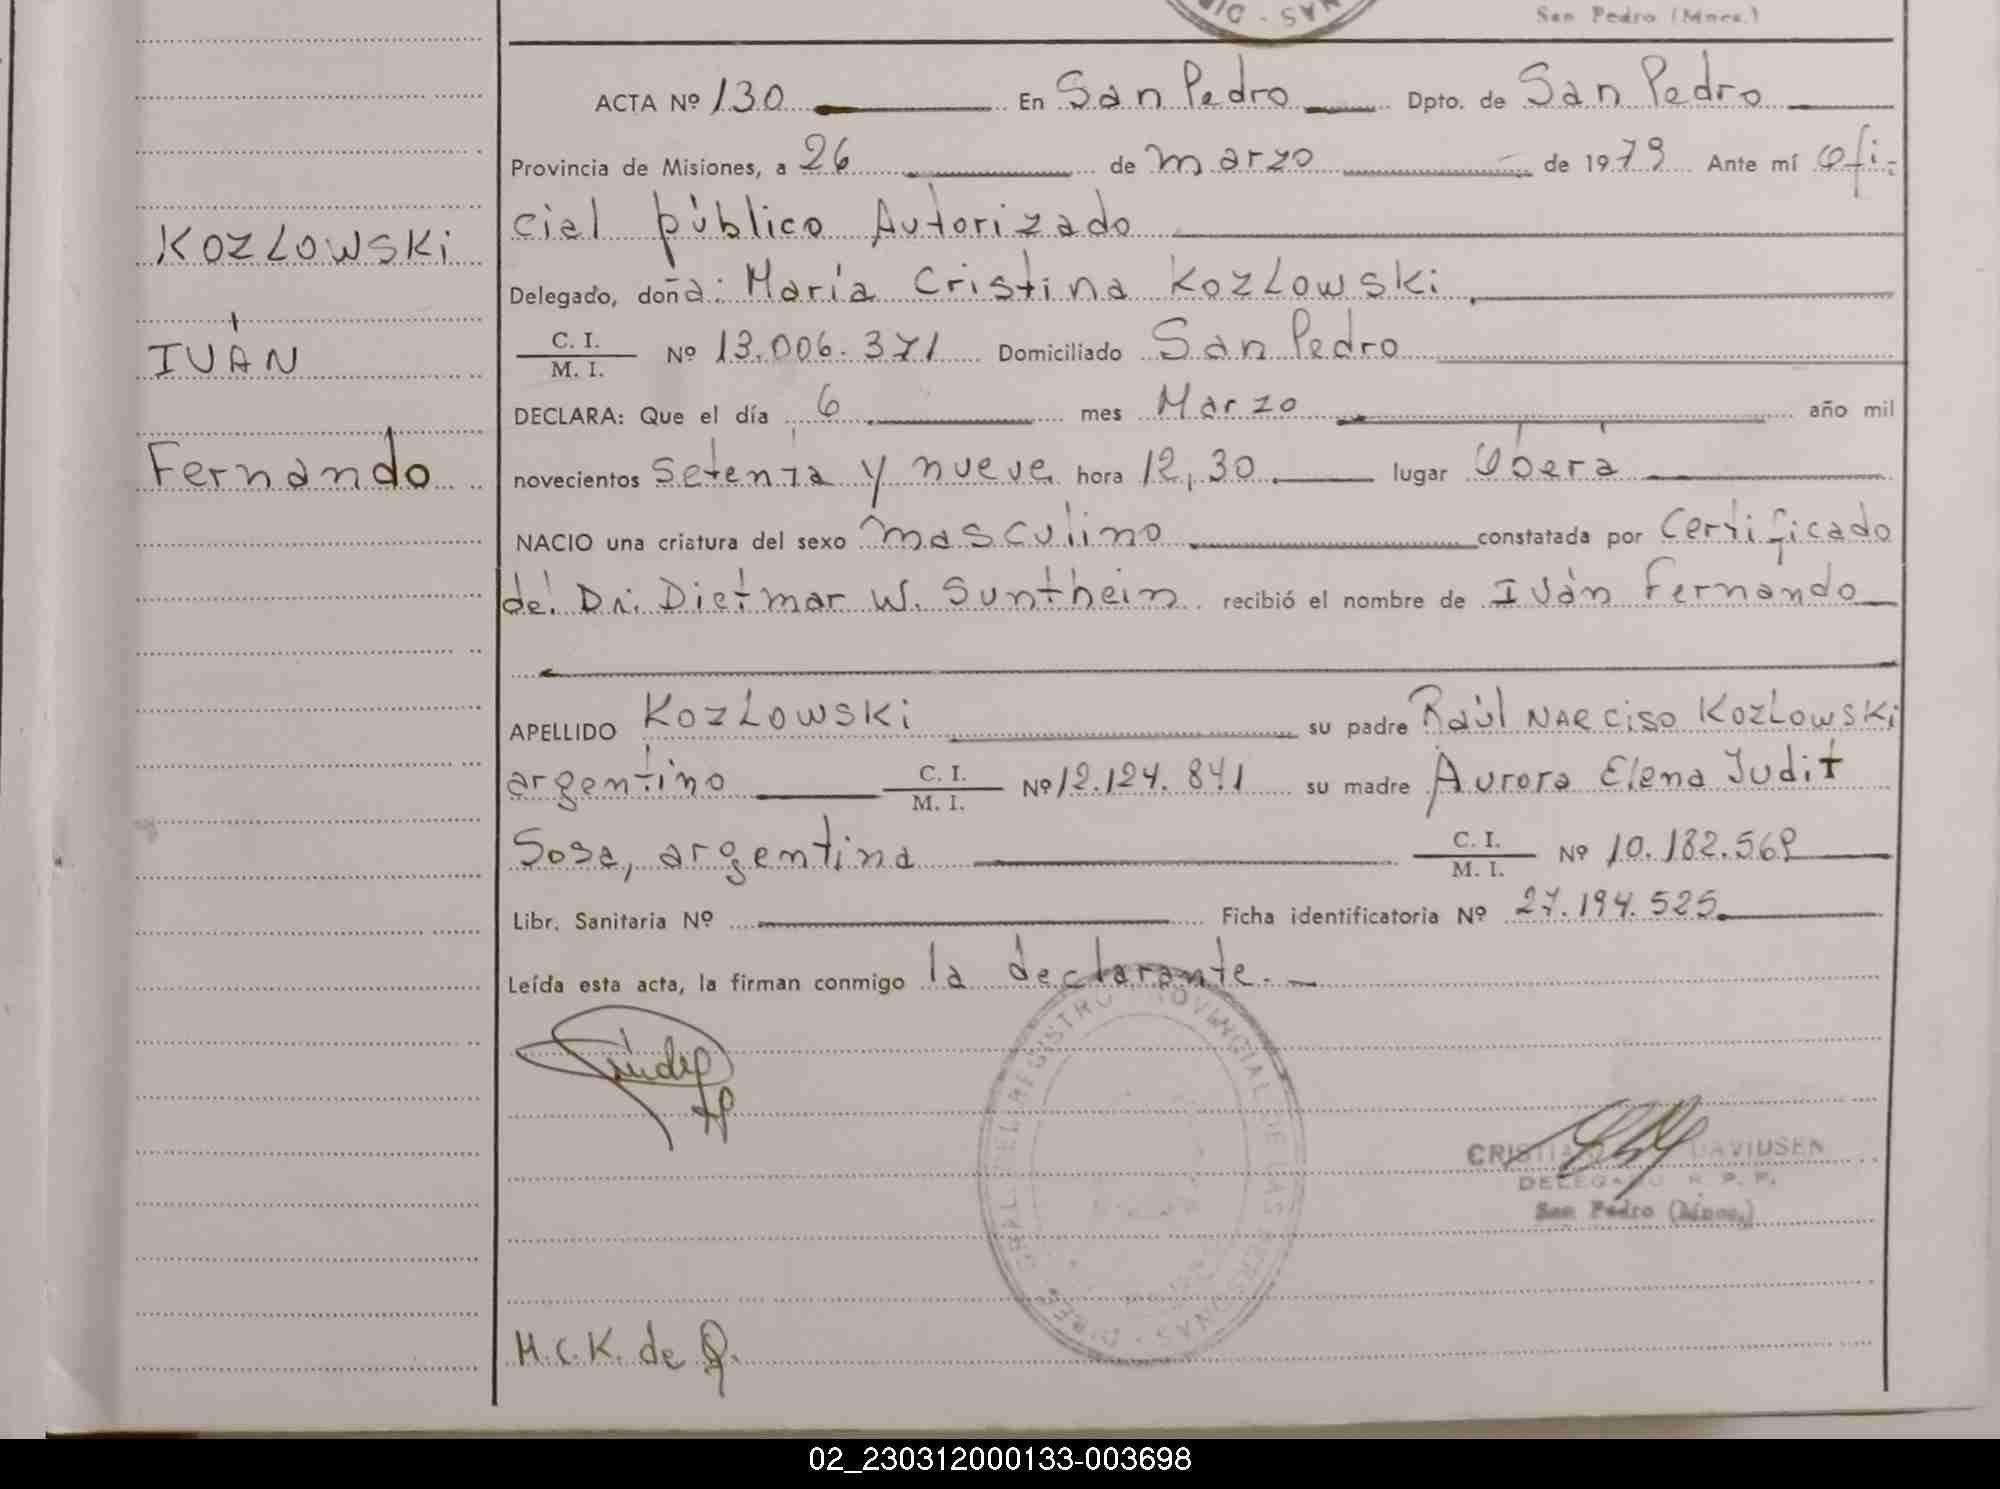 San Pedro (Mnes.)
ACTA Nº 130 En San Pedro Dpto. de San Pedro
Provincia de Misiones, a 26 de marzo de 1979 Ante mí Ofi-
cial público Autorizado
KOZLOWSKi
Delegado, doña: María Cristina KozLowski
C. I.
M. I. Nº 13.006.371 Domiciliado San Pedro
IVÁN
DECLARA: Que el día 6 mes Marzo año mil
Fernando
novecientos setenta y nueve hora 12,30 lugar Oberá
NACIO una criatura del sexo masculino constatada por Certificado
del Dr. Dietmar W. Sunthein recibió el nombre de Iván Fernando
APELLIDO KozLowski su padre Raúl NARciso KozLowski
argentino C. I.
M. I. Nº 12.124.841 su madre Aurora Elena Judit
Sosa, argentina C. I.
M. I. Nº 10.182.569
Libr. Sanitaria Nº Ficha identificatoria Nº 27.194.525
Leída esta acta, la firman conmigo la declarante.-
REGISTRO PROVINCIAL DE LAS PERSONAS
DAVIDSEN
DELEGADO R. P. P.
San Pedro (Mnes.)
M.C.K. de
02_230312000133-003698